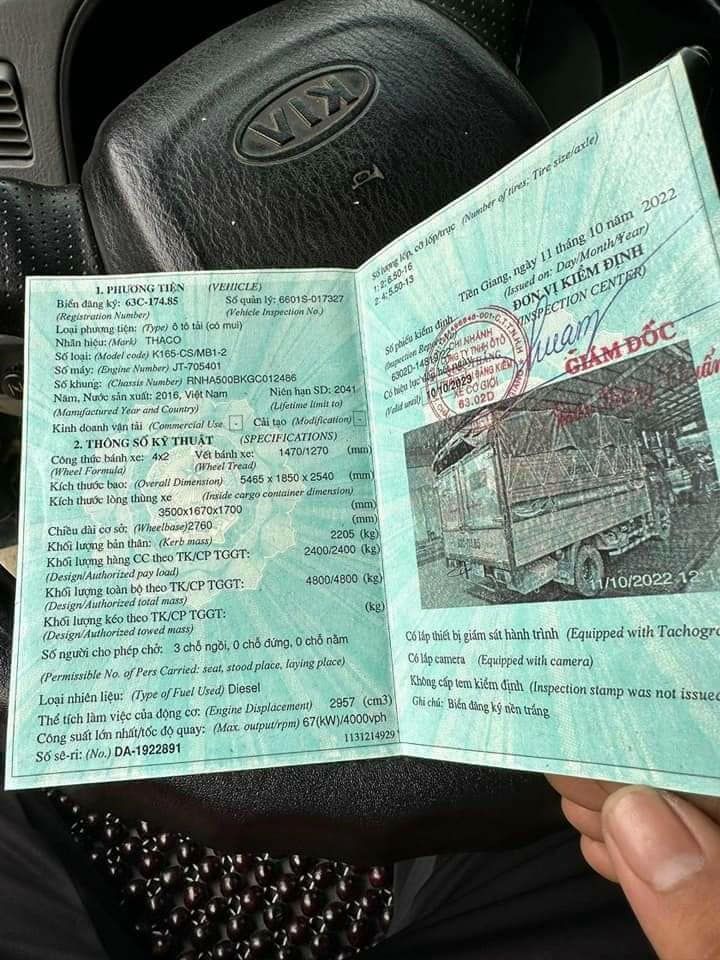 KIA
1. PHƯƠNG TIỆN (VEHICLE)
Biển đăng ký: 63C-174.85 Số quản lý: 6601S-017327
(Registration Number) (Vehicle Inspection No.)
Loại phương tiện: (Type) ô tô tải (có mui)
Nhãn hiệu: (Mark) THACO
Số loại: (Model code) K165-CS/MB1-2
Số máy: (Engine Number) JT-705401
Số khung: (Chassis Number) RNHA500BKGC012486
Năm, Nước sản xuất: 2016, Việt Nam Niên hạn SD: 2041
(Manufactured Year and Country) (Lifetime limit to)
Kinh doanh vận tải (Commercial Use) - Cải tạo (Modification) -
2. THÔNG SỐ KỸ THUẬT (SPECIFICATIONS)
Công thức bánh xe: 4x2 Vết bánh xe: 1470/1270 (mm)
(Wheel Formula) (Wheel Tread)
Kích thước bao: (Overall Dimension) 5465 x 1850 x 2540 (mm)
Kích thước lòng thùng xe (Inside cargo container dimension)
3500x1670x1700 (mm)
Chiều dài cơ sở: (Wheelbase) 2760 (mm)
Khối lượng bản thân: (Kerb mass) 2205 (kg)
Khối lượng hàng CC theo TK/CP TGGT: 2400/2400 (kg)
(Design/Authorized pay load)
Khối lượng toàn bộ theo TK/CP TGGT: 4800/4800 (kg)
(Design/Authorized total mass)
Khối lượng kéo theo TK/CP TGGT: (kg)
(Design/Authorized towed mass)
Số người cho phép chở: 3 chỗ ngồi, 0 chỗ đứng, 0 chỗ nằm
(Permissible No. of Pers Carried: seat, stood place, laying place)
Loại nhiên liệu: (Type of Fuel Used) Diesel
Thể tích làm việc của động cơ: (Engine Displacement) 2957 (cm3)
Công suất lớn nhất/tốc độ quay: (Max. output/rpm) 67(kW)/4000vph
Số sê-ri: (No.) DA-1922891 1131214929
Số lượng lốp, cỡ lốp/trục (Number of tires; Tire size/axle)
1: 2; 6.50-16
2: 4; 5.50-13
Tiền Giang, ngày 11 tháng 10 năm 2022
(Issued on: Day/Month/Year)
ĐƠN VỊ KIỂM ĐỊNH
(INSPECTION CENTER)
Số phiếu kiểm định
(Inspection Report No)
Có hiệu lực đến hết ngày
(Valid until) 10/10/2023
CHI NHÁNH
CÔNG TY TNHH ÔTÔ
XE CƠ GIỚI
63.02D
GIÁM ĐỐC
11/10/2022
Có lắp thiết bị giám sát hành trình (Equipped with Tachogra
Có lắp camera (Equipped with camera)
Không cấp tem kiểm định (Inspection stamp was not issued
Ghi chú: Biển đăng ký nền trắng